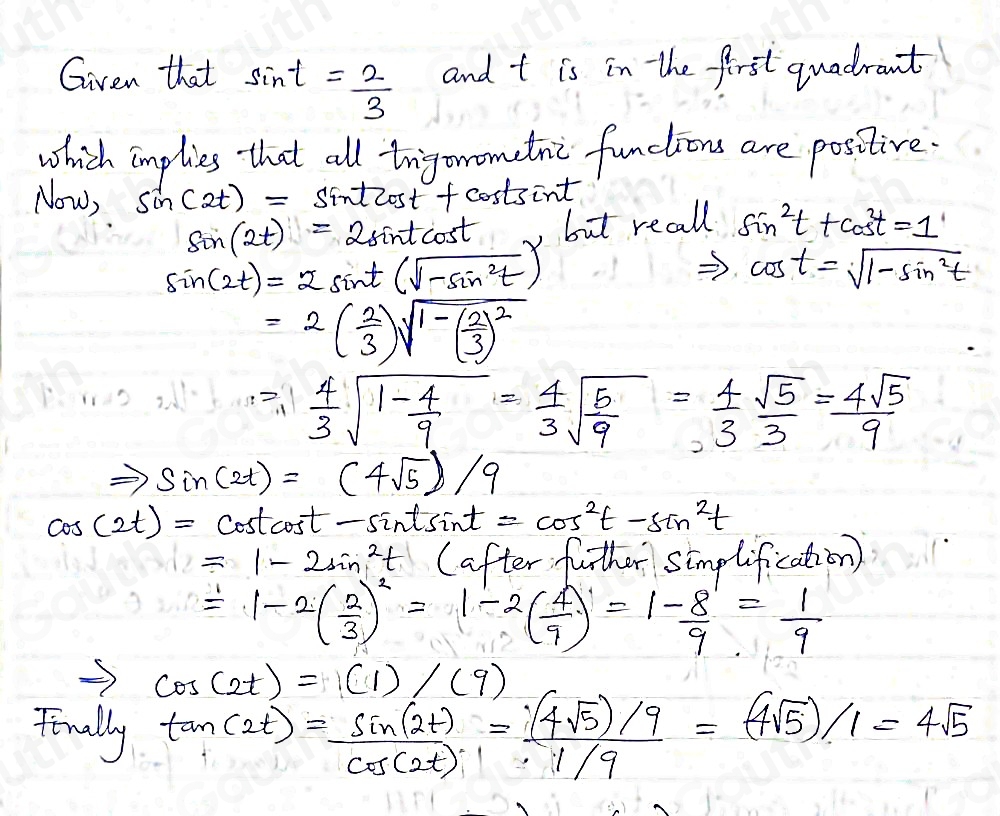 Given that sint = 2/3 and t is in the first quadrant
which implies that all trigonometric functions are positive.
Now, sin(2t) = sintcost + costsint
sin(2t) = 2sintcost, but recall sin²t + cos²t = 1
sin(2t) = 2 sint (√1-sin²t) ⇒ cos t = √1-sin²t
= 2 (2/3) √1-(2/3)²
= 4/3 √1-4/9 = 4/3 √5/9 = 4/3 √5/3 = 4√5/9
⇒ Sin(2t) = (4√5)/9
cos(2t) = costcost - sintsint = cos²t - sin²t
= 1 - 2sin²t (after further simplification)
= 1-2(2/3)² = 1-2(4/9) = 1-8/9 = 1/9
⇒ cos(2t) = (1)/(9)
Finally tan(2t) = sin(2t)/cos(2t) = (4√5)/9 / 1/9 = (4√5)/1 = 4√5